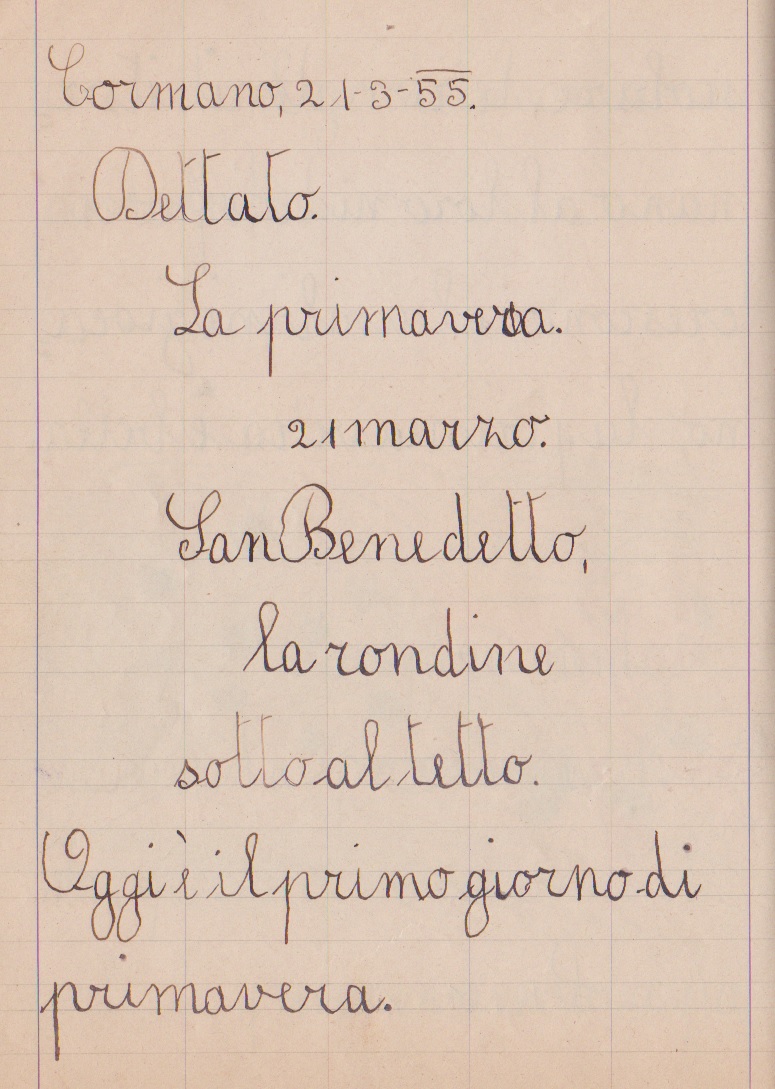 Cormano, 21-3-55.
Dettato.
La primavera.
21 marzo.
San Benedetto,
la rondine
sotto al tetto.
Oggi è il primo giorno di
primavera.